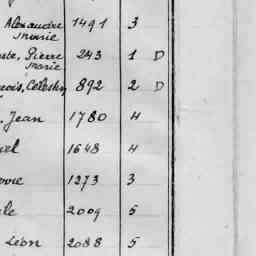 Alexandre 1491 3
Marie
Pierre 243 1 D
Marie
Célestin 892 2 D
Jean 1780 4
1648 4
1273 3
2009 5
Léon 2088 5